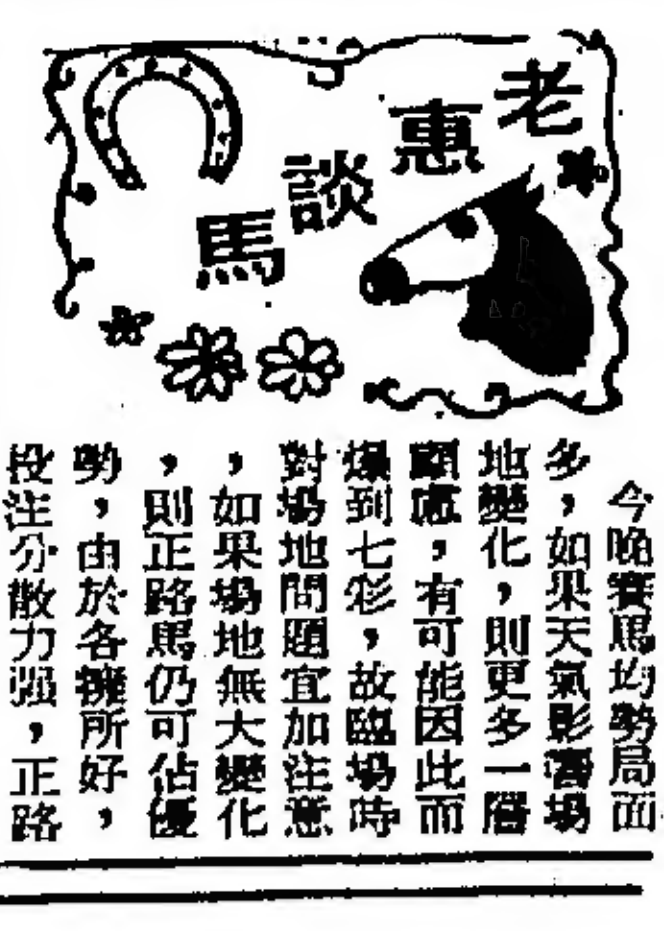 老惠談馬
今晚賽馬均勢局面
多，如果天氣影響場
地變化，則更多一層
顧慮，有可能因此而
爆到七彩，故臨場時
對場地問題宜加注意
，如果場地無大變化
，則正路馬仍可佔優
勢，由於各擁所好，
投注分散力强，正路